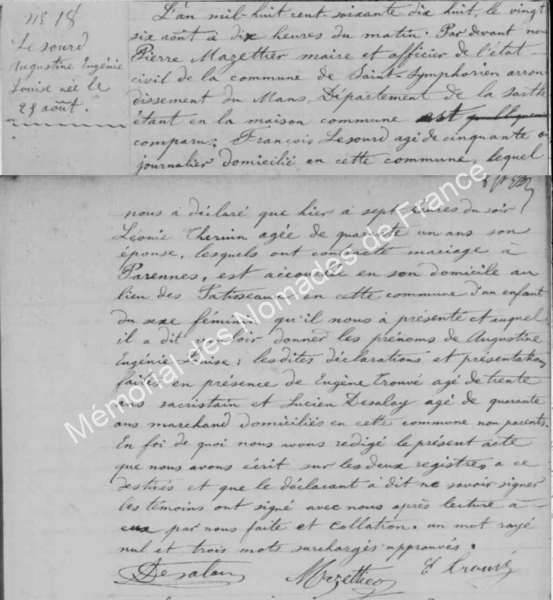 N° 18
Lesourd
Augustine Eugénie
Louise née le
25 août.
L'an mil-huit-cent-soixante dix huit, le vingt
six août à dix heures du matin. Par devant nous
Pierre Mazettier maire et officier de l'état-
civil de la commune de Saint-Symphorien arron
dissement du Mans, Département de la Sarthe
étant en la maison commune est publiquement
comparu; François Lesourd agé de cinquante
journalier domicilié en cette commune, lequel
nous à déclaré que hier à sept heures du soir
Léonie agée de quarante un ans son
épouse, lesquels ont contracté mariage à
Parennes, est accouchée en son domicile au
lieu des en cette commune d'un enfant
du sexe féminin qu'il nous à présenté et auquel
il a dit vouloir donner les prénoms de Augustine
Eugénie Louise; les dites déclarations et présentation
faites en présence de Eugène Trouvé agé de trente
ans sacristain et Lucien Desalay agé de quarante
ans marchand domiciliés en cette commune non parents.
En foi de quoi nous avons redigé le présent acte
que nous avons écrit sur les deux registres a ce
destinés et que le déclarant a dit ne savoir signer
les témoins ont signé avec nous après lecture à
eux par nous faite et collation. un mot rayé
nul et trois mots surchargés approuvés.
Desalay Mazettier E Trouvé
Mémorial des Nomades de France